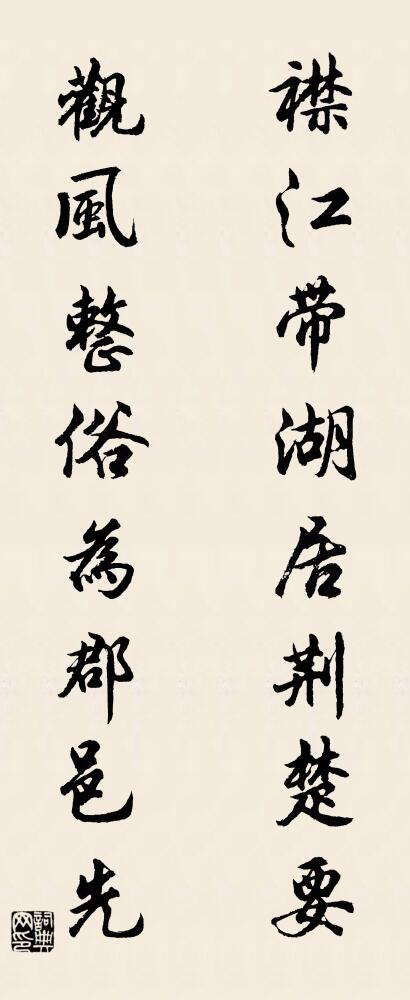 襟江带湖居荆楚要
觀風整俗為郡邑先
詞典网印